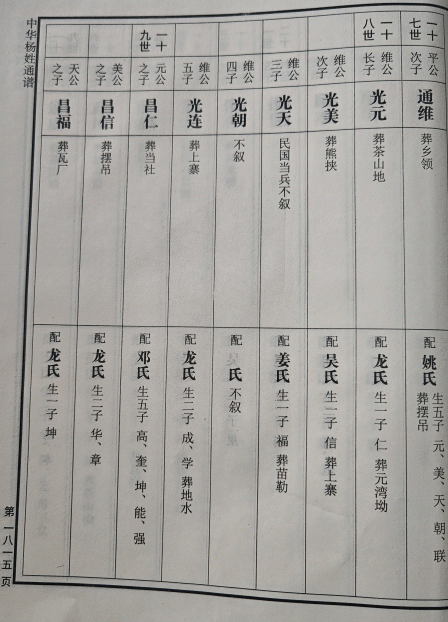 一十七世
平公次子
通维
葬乡领
配 姚氏 生五子 元、美、天、朝、联
葬摆吊
一十八世
维公长子
光元
葬茶山地
配 龙氏 生一子 仁 葬元湾坳
维公次子
光美
葬熊挟
配 吴氏 生一子 信 葬上寨
维公三子
光天
民国当兵不叙
配 姜氏 生一子 福 葬苗勒
维公四子
光朝
不叙
配 氏 不叙
维公五子
光连
葬上寨
配 龙氏 生二子 成、学 葬地水
一十九世
元公之子
昌仁
葬当社
配 邓氏 生五子 高、奎、坤、能、强
美公之子
昌信
葬摆吊
配 龙氏 生二子 华、章
天公之子
昌福
葬瓦厂
配 龙氏 生一子 坤
中华杨姓通谱
第一八一五页